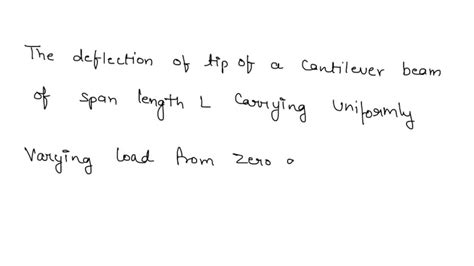 The deflection of tip of a cantilever beam
of span length L carrying uniformly
Varying load from zero a